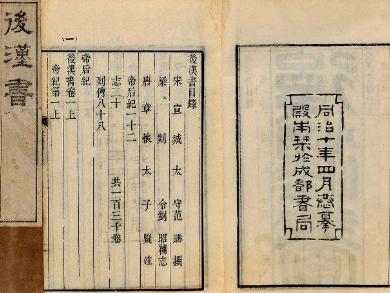 同治十年四月恭摹
殿本栞於成都書局
後漢書目錄
宋宣城太守范曄撰
梁剡令劉昭補志
唐章懷太子賢注
帝后紀一十二
志三十
共一百三十卷
列傳八十八
帝后紀
後漢書卷一上
帝紀第一上
後漢書